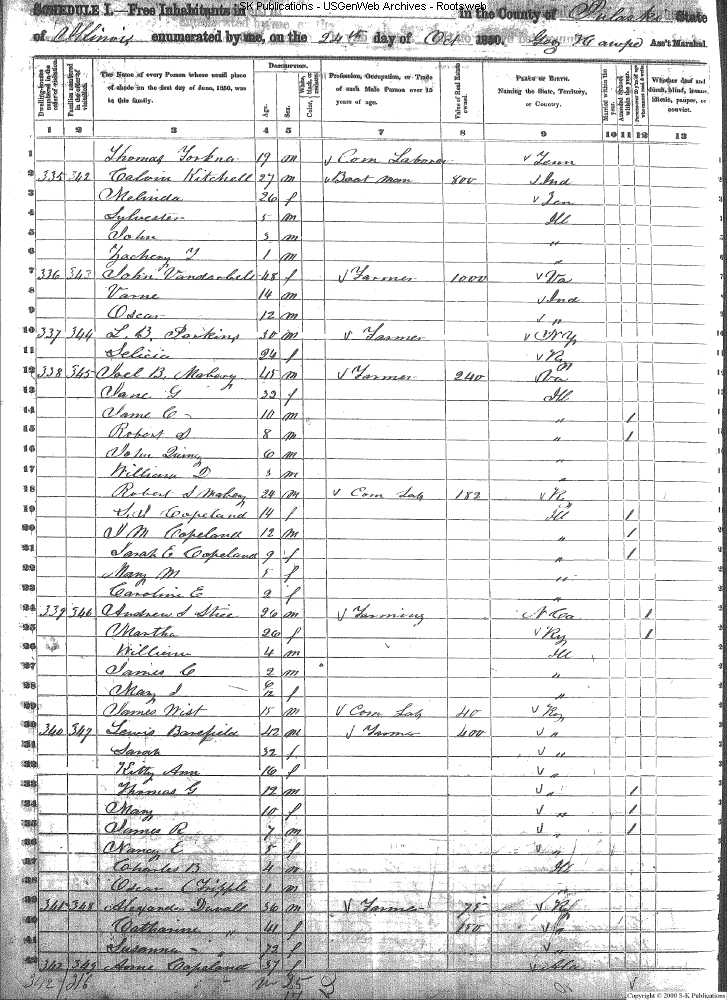 SK Publications - USGenWeb Archives - Rootsweb
SCHEDULE I.—Free Inhabitants in in the County of Pulaski State
of Illinois enumerated by me, on the 24th day of Oct 1850. Ass't Marshal.
Dwelling-houses numbered in the order of visitation.
Families numbered in the order of visitation.
The Name of every Person whose usual place of abode on the first day of June, 1850, was in this family.
DESCRIPTION.
Age.
Sex.
Color, White, black, or mulatto.
Profession, Occupation, or Trade of each Male Person over 15 years of age.
Value of Real Estate owned.
PLACE OF BIRTH. Naming the State, Territory, or Country.
Married within the year.
Attended School within the year.
Whether deaf and dumb, blind, insane, idiotic, pauper, or convict.
1 2 3 4 5 6 7 8 9 10 11 12 13
1 Thomas 19 m Com Laborer Tenn
2 335 342 Calvin Kitchell 27 m Boat man 800 Ind
3 Melinda 26 f Ten
4 Sylvester 5 m Ill
5 John 3 m "
6 Zachery T 1 m "
7 336 343 John Vanderbelt 48 f Farmer 1000 Va
8 Varne 14 m Ind
9 Oscar 12 m "
10 337 344 L B. Perkins 30 m Farmer N Y
11 Felicia 24 f Ky
12 338 345 Joel B. Mabery 45 m Farmer 240 Va
13 Jane G 32 f Ill
14 Jame C 10 m " 1
15 Robert S 8 m " 1
16 John Quincy 6 m "
17 William D 3 m "
18 Robert S Mabery 24 m Com Lab 182 Ky
19 Copeland 14 f Ill 1
20 J M Copeland 12 m " 1
21 Sarah E Copeland 9 f " 1
22 Mary M 5 f "
23 Caroline E 2 f "
24 339 346 Andrew J 26 m Farming N Ca 1
25 Martha 26 f Ky 1
26 William 4 m Ill
27 James C 2 m "
28 Mary J 6/12 f "
29 James Wist 15 m Com Lab 40 Ky
30 340 347 Lewis Barefield 42 m Farmer 400 "
31 Sarah 32 f "
32 Kitty Ann 16 f "
33 Thomas G 12 m " 1
34 Mary 10 f " 1
35 James R 7 m " 1
36 Nancy E 5 f "
37 Charles B 4 m Ill
38 Oscar Cripple 1 m "
39 341 348 Alexander Duvall 36 m Farmer 75
40 Catharine " 41 f 150 "
41 Susanna " 72 f "
42 342 349 Anne Copeland 37 f Ala
Copyright © 2000 S-K Publications